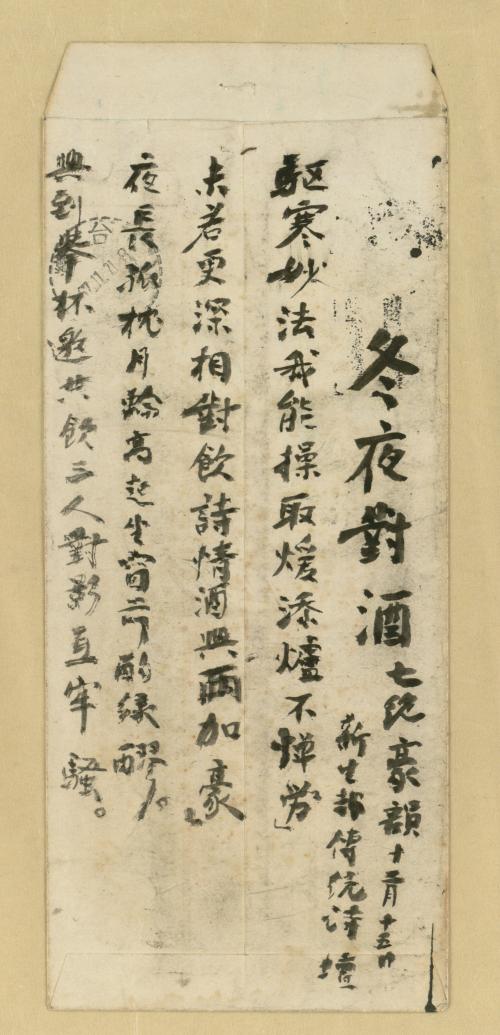 冬夜對酒 七絕豪韻 十二月十五日
新生報傳統詩壇
驅寒妙法我能操取煖添爐不憚勞」
未若更深相對飲詩情酒興兩加豪」
夜長孤枕月輪高起坐窗前酌綠醪。
興到舉杯邀共飲三人對影互牢騷。